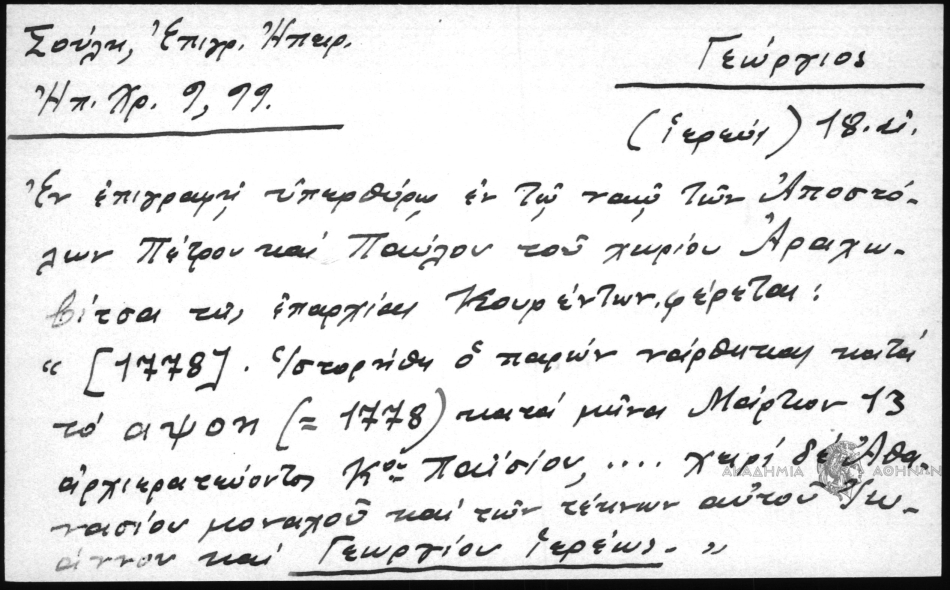 Σούλη, Ἐπιγρ. Ἠπειρ.
Ἠπ. Χρ. 9, 99.
Γεώργιος
(ἱερεύς) 18. αἰ.
Ἐν ἐπιγραφῇ ὑπερθύρῳ ἐν τῷ ναῷ τῶν Ἀποστό-
λων Πέτρου καί Παύλου τοῦ χωρίου Ἀραχω-
βίτσας τῆς ἐπαρχίας Κουρέντων, φέρεται:
“ [1778]. Ἱστορήθη ὁ παρών νάρθηκας κατά
τό αψοη (= 1778) κατά μῆνα Μάρτιον 13
ἀρχιερατεύοντος Κοῦ Παϊσίου, .... χειρί δέ Ἀθα-
νασίου μοναχοῦ καί τῶν τέκνων αὐτοῦ Ἰω-
άννου καί Γεωργίου ἱερέως. ”
ΑΚΑΔΗΜΙΑ ΑΘΗΝΩΝ